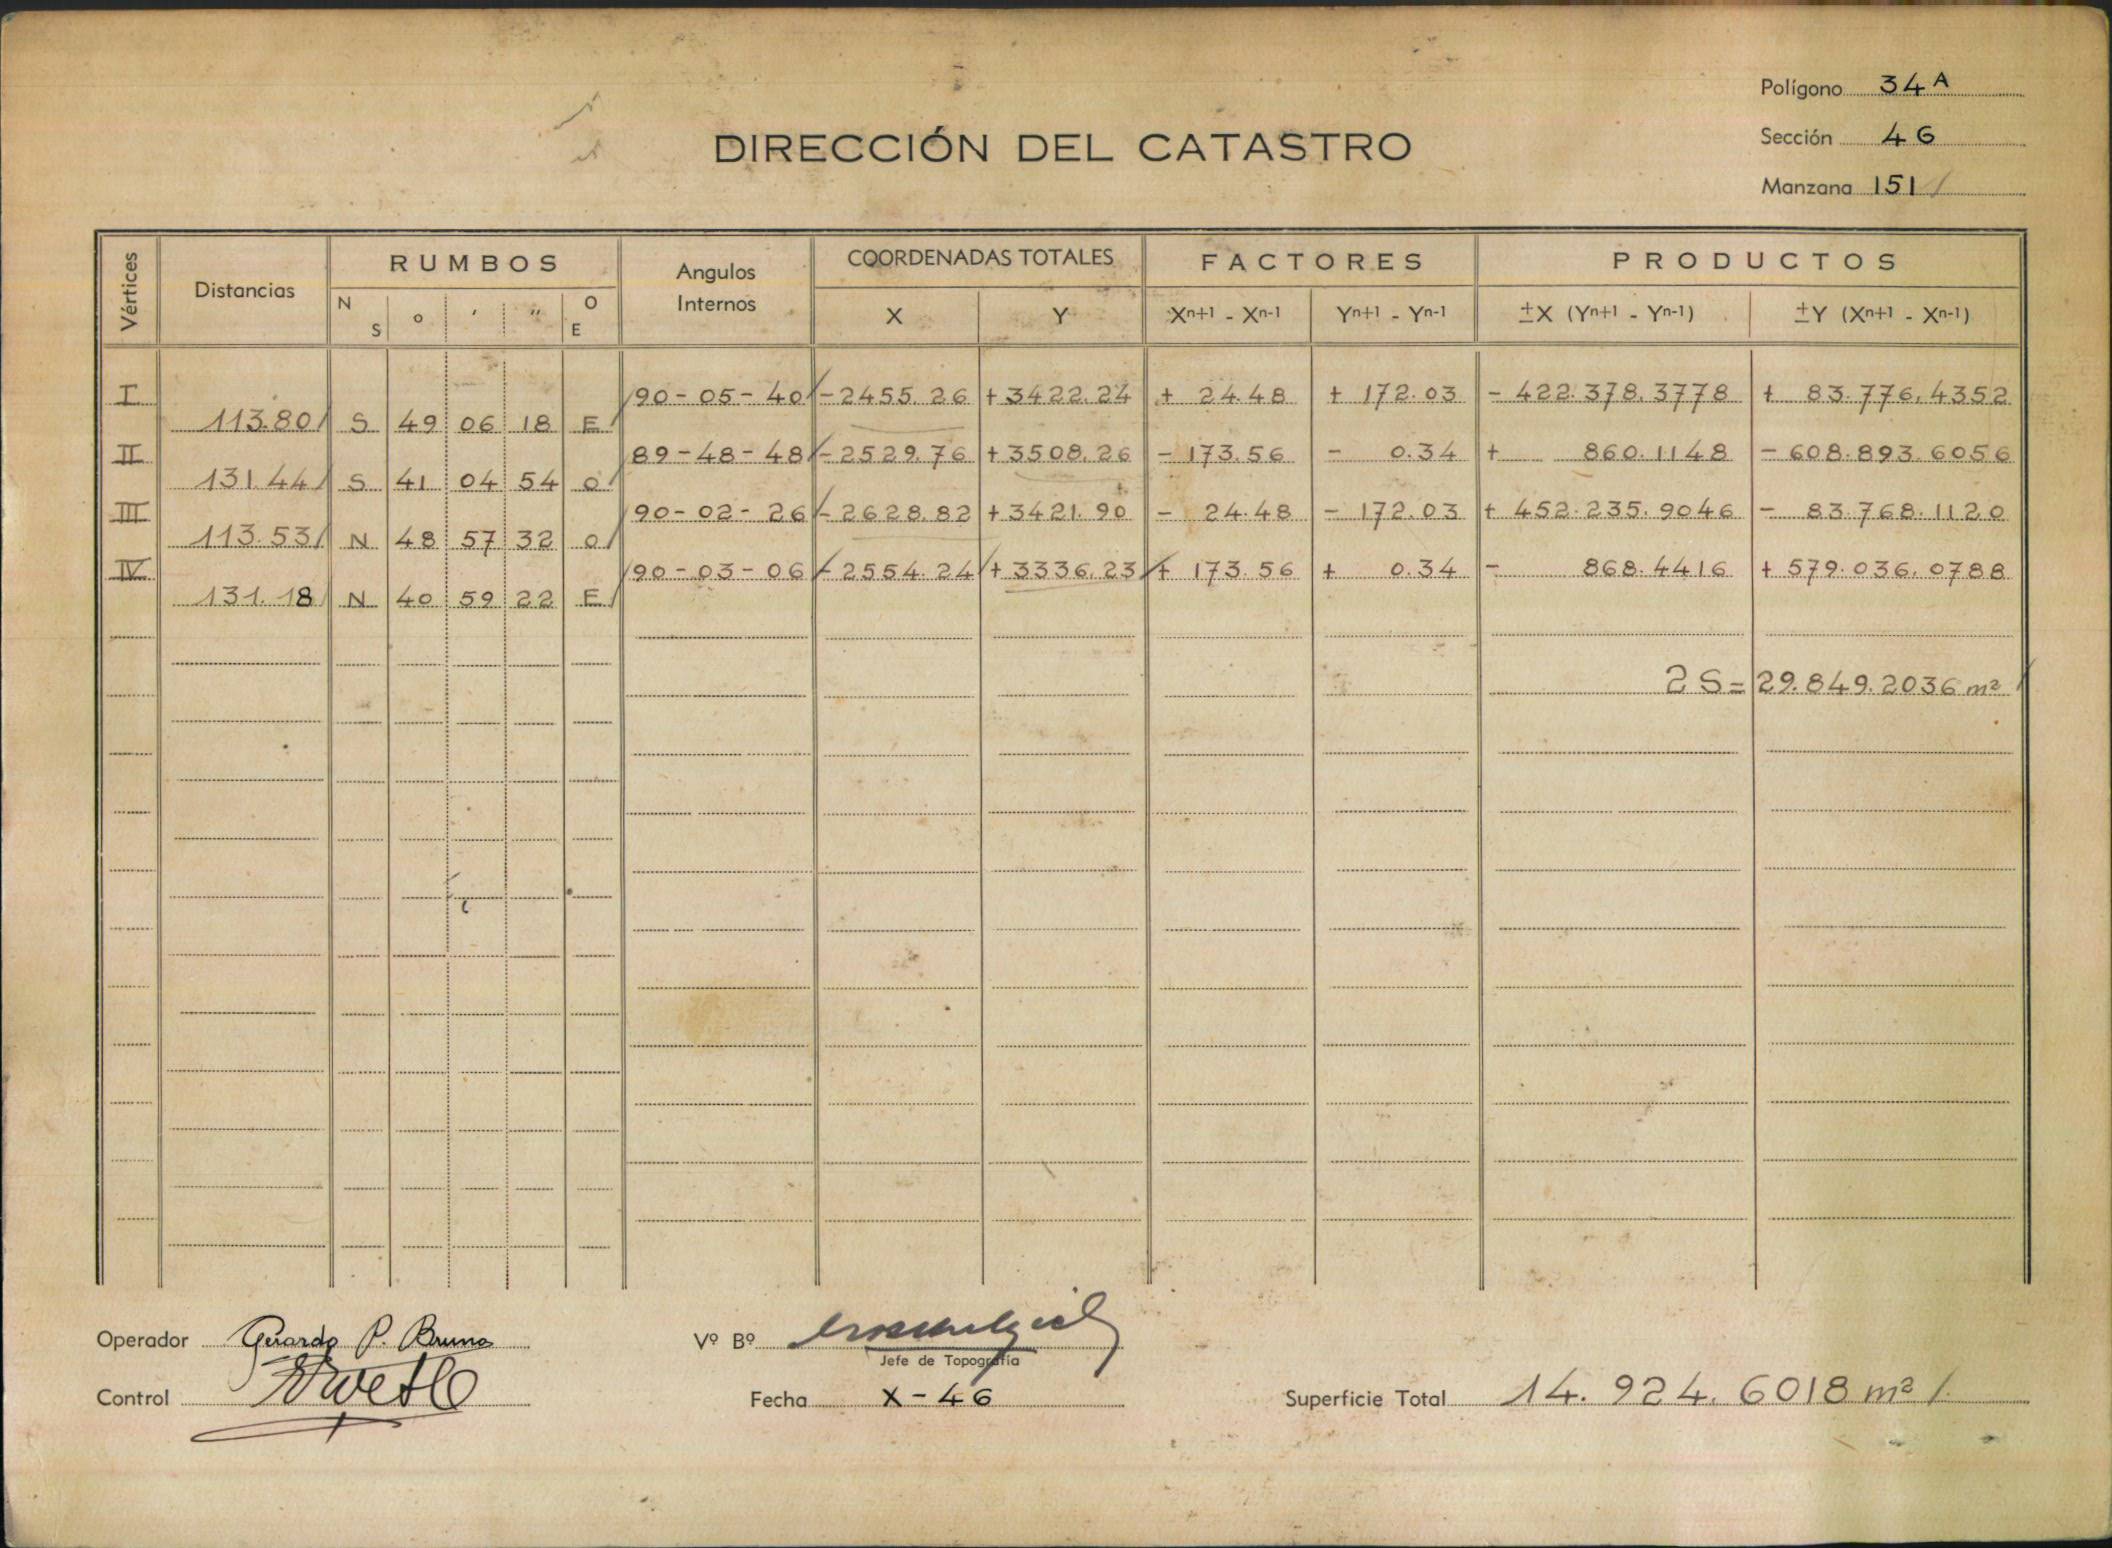 Polígono 34 A
DIRECCIÓN DEL CATASTRO
Sección 46
Manzana 151
Vértices Distancias RUMBOS Angulos Internos COORDENADAS TOTALES FACTORES PRODUCTOS
N S o ' " O E X Y Xn+1 - Xn-1 Yn+1 - Yn-1 ±X (Yn+1 - Yn-1) ±Y (Xn+1 - Xn-1)
I 90-05-40 -2455.26 +3422.24 + 24.48 + 172.03 - 422.378.3778 + 83.776,4352
113.80 S 49 06 18 E
II 89-48-48 -2529.76 +3508.26 - 173.56 - 0.34 + 860.1148 - 608.893.6056
131.44 S 41 04 54 O
III 90-02-26 -2628.82 +3421.90 - 24.48 - 172.03 + 452.235.9046 - 83.768.1120
113.53 N 48 57 32 O
IV 90-03-06 -2554.24 +3336.23 + 173.56 + 0.34 - 868.4416 + 579.036.0788
131.18 N 40 59 22 E
2S= 29.849.2036 m²
Operador Gerardo P. Bruno Vº Bº
Jefe de Topografía
Control Fecha X-46 Superficie Total 14.924.6018 m²